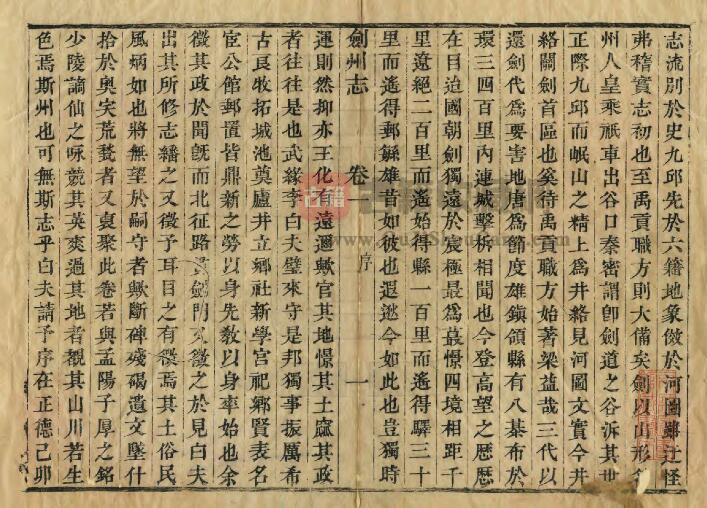 志流別於史九邱先於六籍地象倣於河圖雖辻怪
弗稽實志初也至禹貢職方則大備矣劍以山形
州人皇乘祇車出谷口秦密謂卽劍道之谷泝其世
正際九邱而岷山之精上爲井絡見河圖文實今井
絡關劍首區也奚待禹貢職方始著梁益哉三代以
還劍代爲要害地唐爲節度雄鎭領縣有八棊布於
環三四百里內連城擊柝相聞也今登高望之歷歷
在目迨國朝劍獨遠於宸極最爲蕞憬四境相距千
里遼絕二百里而遙始得縣一百里而遙得驛三十
里而遙得郵鋪雄昔如彼也遐逖今如此也豈獨時
劍州志 卷一 序 一
運則然抑亦王化有遠邇歟官其地憬其土寙其政
者往往是也武緣李白夫璧來守是邦獨事振厲希
古良牧拓城池奠廬井立鄉社新學宮祀鄉賢表名
宦公館郵置皆鼎新之勞以身先敎以身率始也余
徵其政於聞旣而北征路劍門又徵之於見白夫
出其所修志繙之又徵予耳目之有徵焉其土俗民
風病如也將無望於嗣守者歟斷碑殘碣遺文墜什
拾於奧穾荒蓁者又裒聚此卷若與孟陽子厚之銘
少陵謫仙之咏競其英爽過其地者覩其山川若生
色焉斯州也可無斯志乎白夫請予序在正德己卯